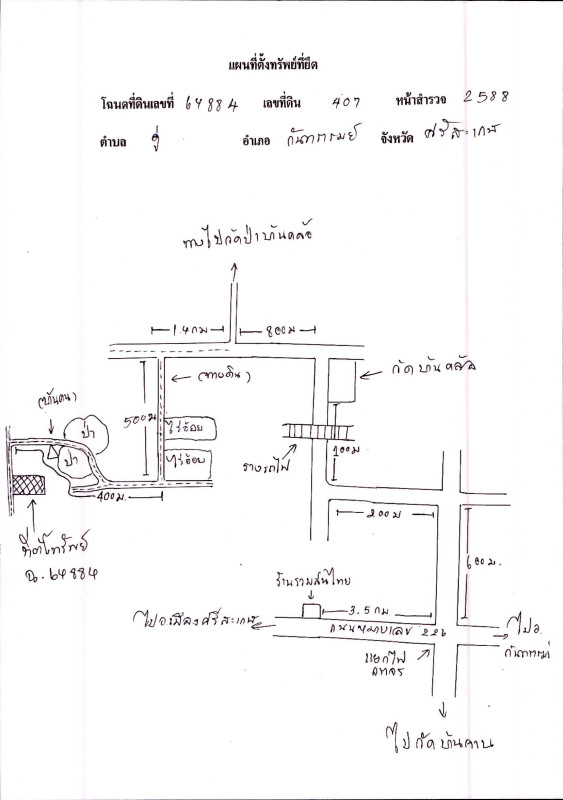 แผนที่ตั้งทรัพย์ที่ยึด
โฉนดที่ดินเลขที่ 64884 เลขที่ดิน 407 หน้าสำรวจ 2588
ตำบล ดู่ อำเภอ กันทรารมย์ จังหวัด ศรีสะเกษ
ทางไปวัดป่าบ้านคล้อ
1.4 กม
800 ม
(ทางดิน)
500 ม
ไร่อ้อย
ไร่อ้อย
ป่า
ป่า
400 ม.
ที่ตั้งทรัพย์
ฉ. 64884
วัดบ้านคล้อ
รางรถไฟ
100 ม
200 ม
600 ม.
ร้านรวมสินไทย
3.5 กม
ไป อ.เมืองศรีสะเกษ
ถนนหมายเลข 226
ไป อ.
กันทรารมย์
แยกไฟ
จราจร
ไปวัดบ้านจาน